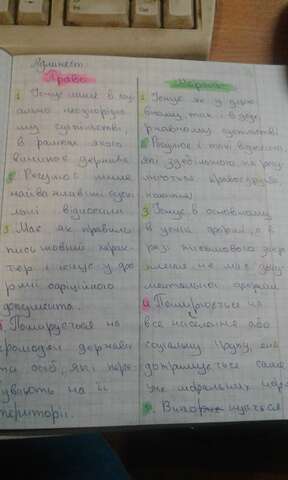 Право
1. Існує лише в соці
ально неоднорідно
му суспільстві,
в рамках якого
виникає держава
2. Регулює лише
найважливіші суспі
льні відносини
3. Має як правило
письмовий харак
тер і існує у фо
рмі офіційного
документа.
Поширюється на
громадян держави
та осіб, які пере
бувають на її
території.
1. Існує як у держа
вному, так і в
державному суспільстві
2. Регулює і такі відносини,
які здебільшого не регу
люються
3. Існує в основному
в усній формі, а в
разі письмового закр
плення не має доку
ментальної форми
4. Поширюється на
все населення або
соціальну групу, яка
дотримується саме
цих моральних нор
5.